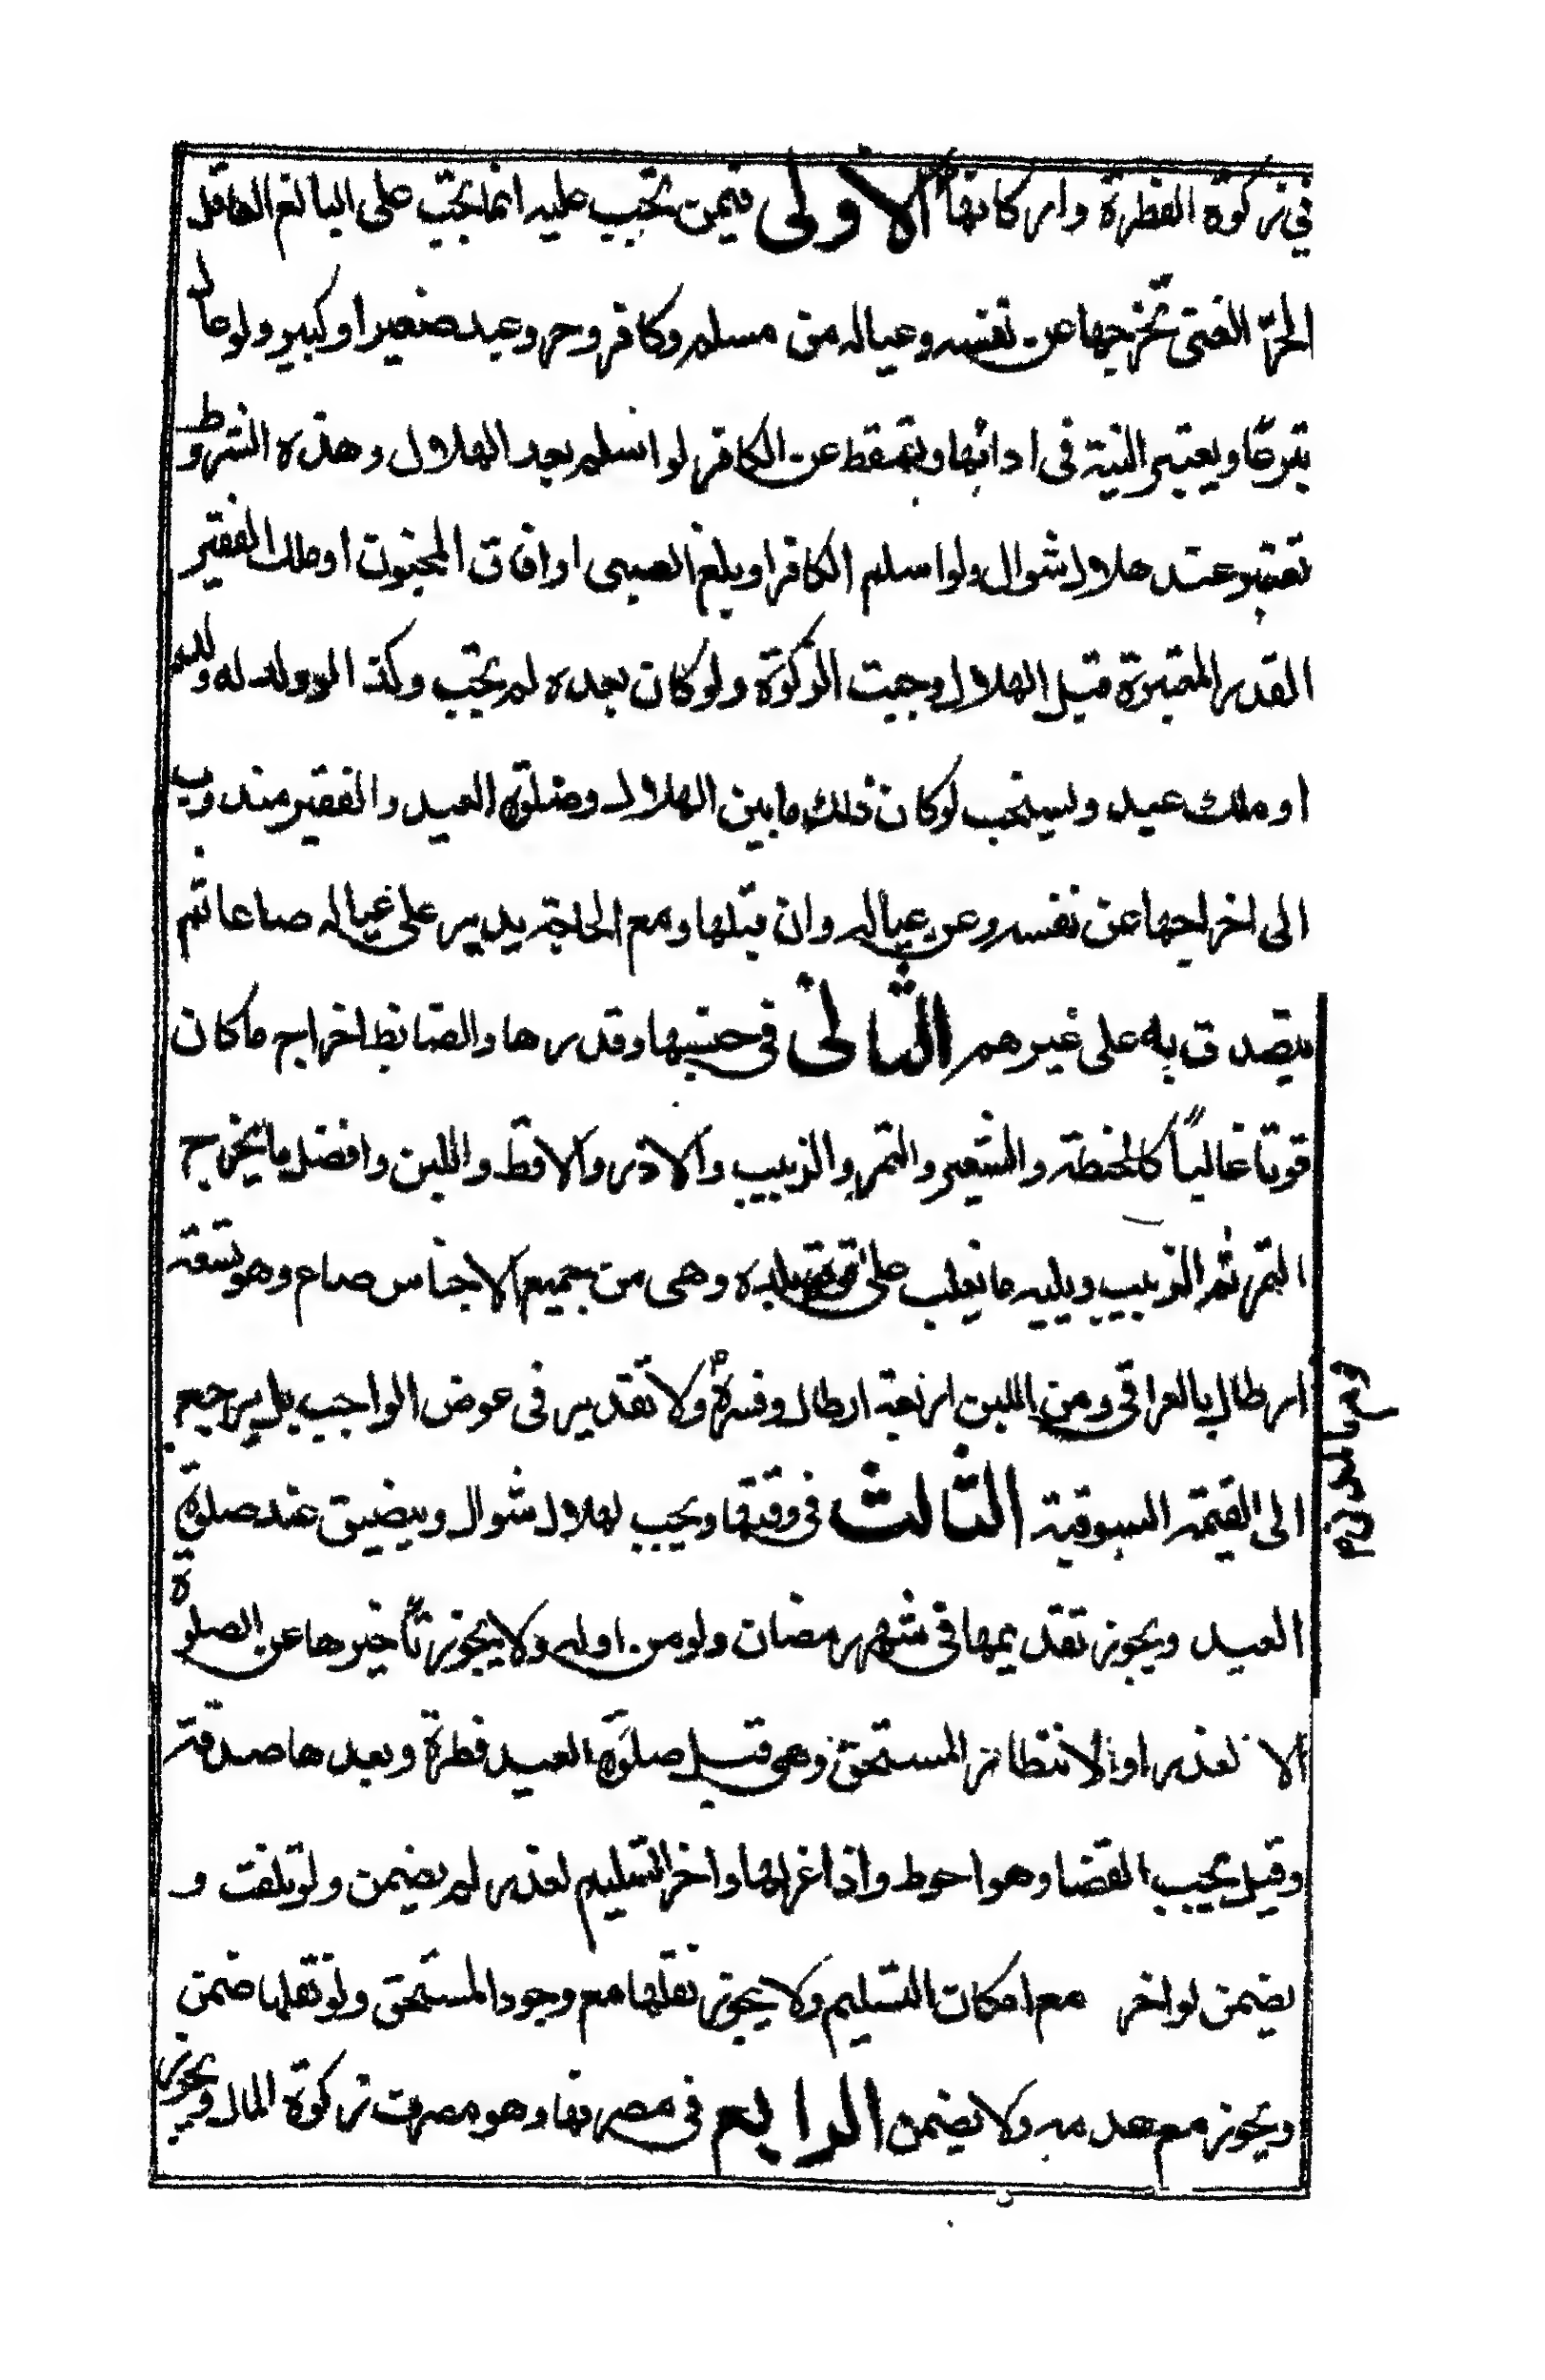 في زكوة الفطرة واركانها الاولى فيمن تجب عليه انما تجب على البالغ العاقل
الحرّ الغنى يخرجها عن نفسه وعياله من مسلم وكافر وحر وعبد صغير او كبير ولو عال
تبرعًا ويعتبر النية فى ادائها وتسقط عن الكافر لو اسلم بعد الهلال وهذه الشروط
تعتبر عند هلال شوال ولو اسلم الكافر او بلغ الصبى او افاق المجنون او ملك الفقير
القدر المعتبرة قبل الهلال وجبت الزكوة ولو كان بعده لم تجب وكذا لو ولد له ولد
او ملك عبد ويستحب لو كان ذلك ما بين الهلال وصلوة العيد والفقير مندوب
الى اخراجها عن نفسه وعن عياله وان قبلها ومع الحاجة يدير على عياله صاعا ثم
يتصدق به على غيرهم الثانى فى جنسها وقدرها والضابط اخراج ما كان
قوتا غالبًا كالحنطة والشعير والتمر والزبيب والارز والاقط واللبن وافضل ما يخرج
التمر ثم الزبيب ويليه ما يغلب على قوت بلده وهى من جميع الاجناس صاع وهو تسعة
ارطال بالعراقى ومن اللبن اربعة ارطال وفسره ولا تقدير فى عوض الواجب بل يرجع
الى القيمة السوقية الثالث فى وقتها ويجب لهلال شوال ويتضيق عند صلوة
العيد ويجوز تقديمها فى شهر رمضان ولو من اوله ولا يجوز تأخيرها عن الصلوة
الا لعذر او لانتظار المستحق وهى قبل صلوة العيد فطرة وبعدها صدقة
وقيل يجب القضا وهو احوط واذا عزلها واخر التسليم لعذر لم يضمن ولو تلفت و
يضمن لو اخر مع امكان التسليم ولا يجوز نقلها مع وجود المستحق ولو نقلها ضمن
ويجوز مع عدمه ولا يضمن الرابع فى مصرفها وهو مصرف زكوة المال ويجوز